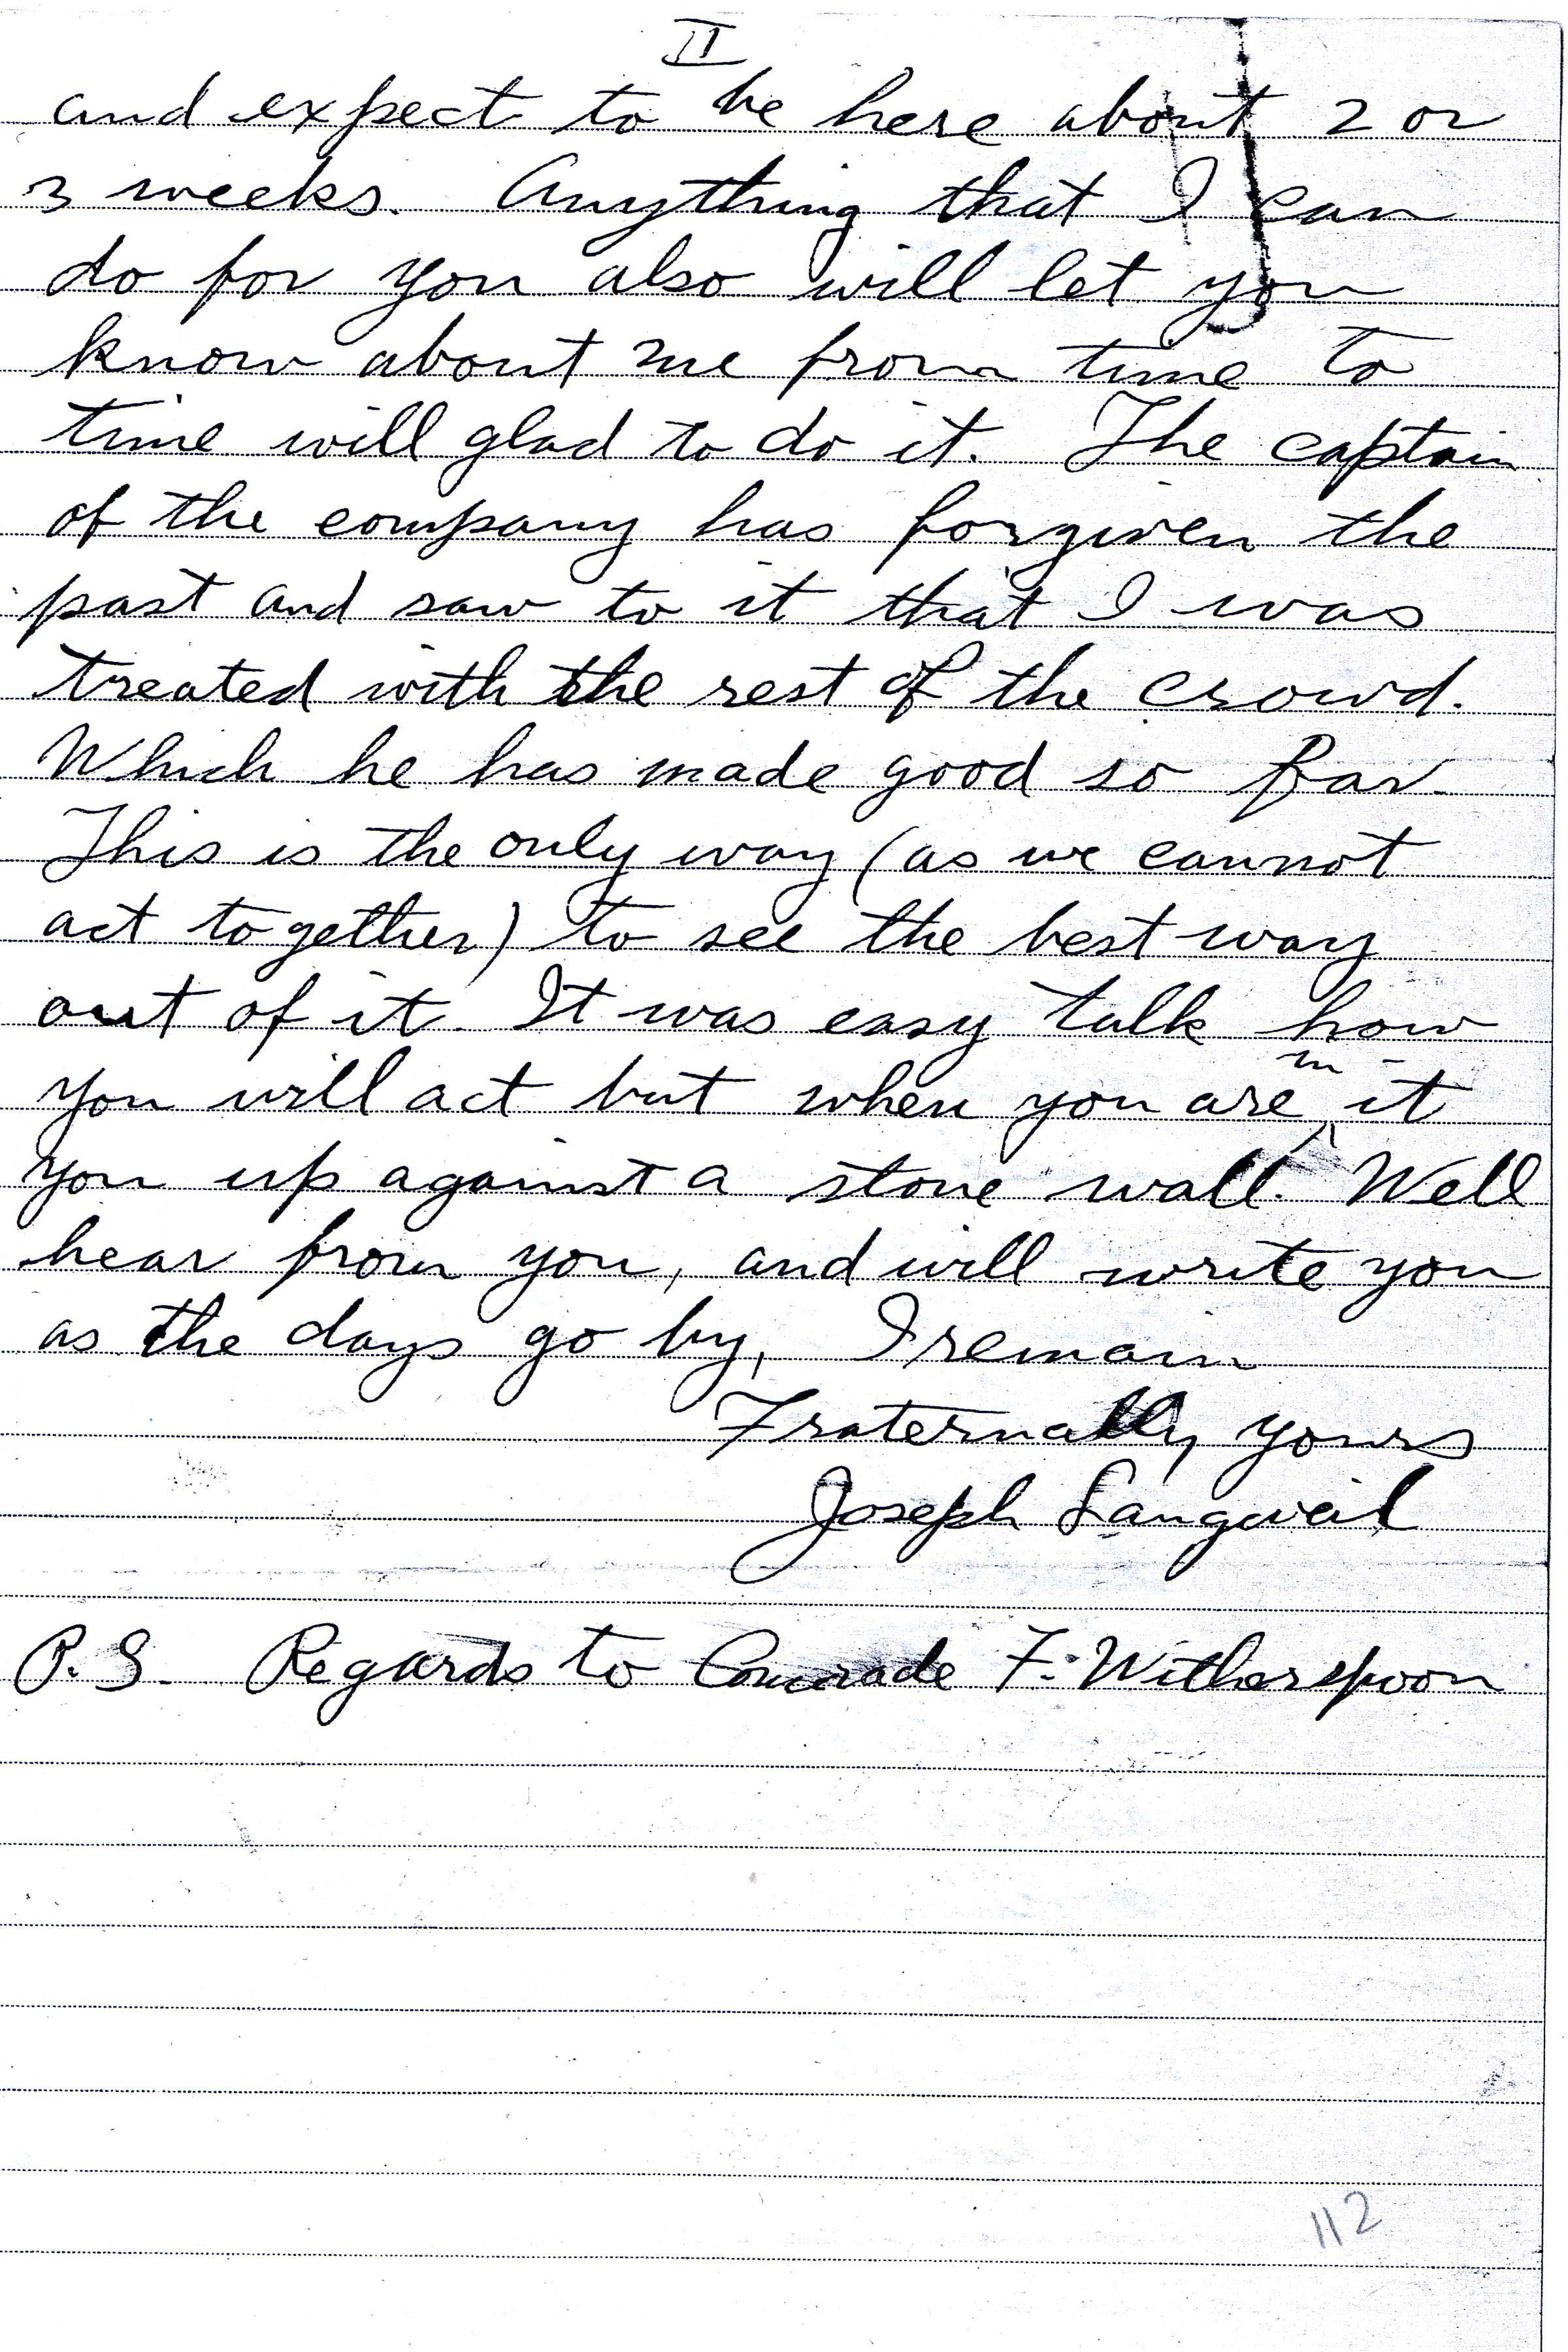 II
and expect to be here about 2 or
3 weeks. Anything that I can
do for you also will let you
know about me from time to
time will glad to do it. The captain
of the company has forgiven the
past and saw to it that I was
treated with the rest of the crowd.
Which he has made good so far.
This is the only way (as we cannot
act together) to see the best way
out of it. It was easy talk how
you will act but when you are in it
you up against a stone wall. Well
hear from you, and will write you
as the days go by, I remain
Fraternally yours
Joseph Langweil
P.S. Regards to Comrade F. Witherspoon
112